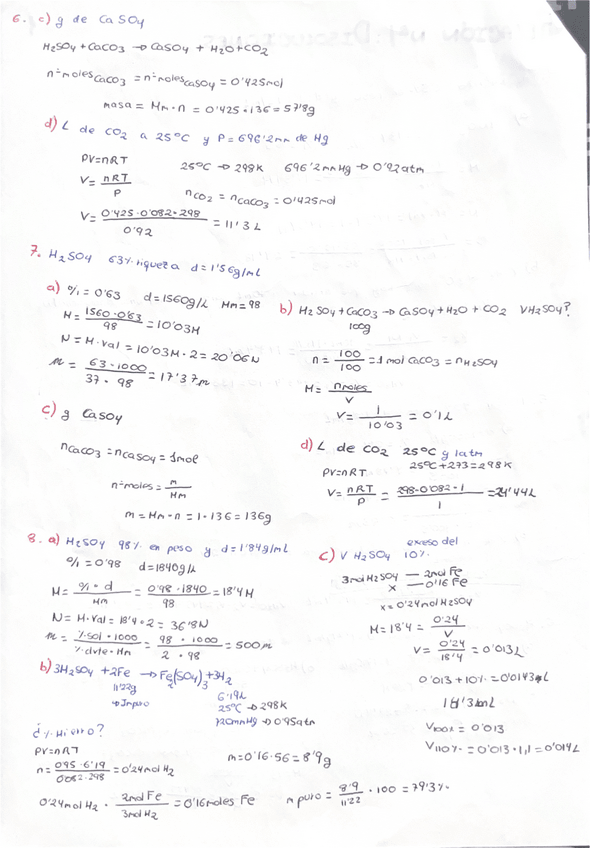 6. c) g de CaSO4
H2SO4 + CaCO3 → CaSO4 + H2O + CO2
nº moles CaCO3 = nº moles CaSO4 = 0'425mol
masa = Mm · n = 0'425 · 136 = 57'8g
d) L de CO2 a 25ºC y P = 696'2 mm de Hg
PV=nRT 25ºC → 298K 696'2mmHg → 0'92atm
V = nRT / P nCO2 = nCaCO3 = 0'425mol
V = 0'425 · 0'082 · 298 / 0'92 = 11'3 L
7. H2SO4 63% riqueza d = 1'56g/mL
a) % = 0'63 d = 1560g/L Mm = 98
M = 1560 · 0'63 / 98 = 10'03M
N = M · val = 10'03M · 2 = 20'06N
m = 63 · 1000 / 37 · 98 = 17'37m
b) H2SO4 + CaCO3 → CaSO4 + H2O + CO2 VH2SO4?
100g
n = 100 / 100 = 1 mol CaCO3 = nH2SO4
M = nmoles / V
V = 1 / 10'03 = 0'1L
c) g CaSO4
nCaCO3 = nCaSO4 = 1mol
nº moles = m / Mm
m = Mm · n = 1 · 136 = 136g
d) L de CO2 25ºC y 1atm
PV=nRT 25ºC + 273 = 298K
V = nRT / P = 298 · 0'082 · 1 / 1 = 24'44L
8. a) H2SO4 98% en peso y d = 1'84g/mL
% = 0'98 d = 1840g/L
M = % · d / Mm = 0'98 · 1840 / 98 = 18'4M
N = M · val = 18'4 · 2 = 36'8N
m = %sol · 1000 / %dvte · Mm = 98 · 1000 / 2 · 98 = 500m
b) 3H2SO4 + 2Fe → Fe2(SO4)3 + 3H2
11'22g 6'19L
→ Impuro 25ºC → 298K
720mmHg → 0'95atm
¿% Hierro?
PV=nRT
n = 0'95 · 6'19 / 0'082 · 298 = 0'24mol H2
0'24mol H2 · 2mol Fe / 3mol H2 = 0'16moles Fe
m = 0'16 · 56 = 8'9g
n puro = 8'9 / 11'22 · 100 = 79'3%
c) V H2SO4 exceso del 10%
3mol H2SO4 — 2mol Fe
x — 0'16 Fe
x = 0'24mol H2SO4
M = 18'4 = 0'24 / V
V = 0'24 / 18'4 = 0'013L
0'013 + 10% = 0'0143L
V100% = 0'013
V110% = 0'013 · 1,1 = 0'014L